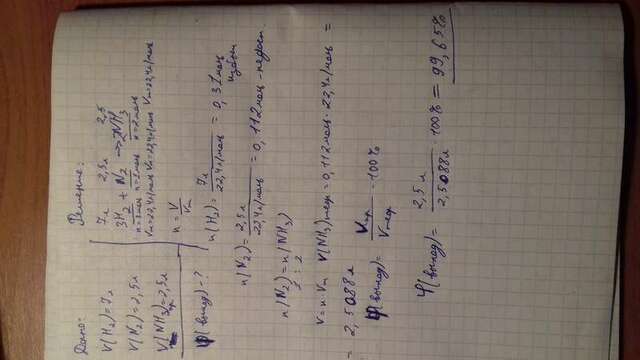 Дано:
V(H₂)=7л
V(N₂)=2,5л
V(NH₃)пр=2,5л
φ(выход)-?
Решение:
7л 2,5л 2,5
3H₂ + N₂ → 2NH₃
n=3моль n=1моль n=2моль
Vm=22,4л/моль Vm=22,4л/моль Vm=22,4л/моль
n = V/Vm
n(H₂) = 7л / 22,4л/моль = 0,31моль
избыт
n(N₂) = 2,5л / 22,4л/моль = 0,112моль - недост.
n(N₂) = n(NH₃)
1 : 2
V=n·Vm V(NH₃)теор = 0,112моль · 22,4л/моль =
= 2,5088л
φ(выход) = Vпр. / Vтеор. · 100%
φ(выход) = 2,5л / 2,5088л · 100% = 99,65%